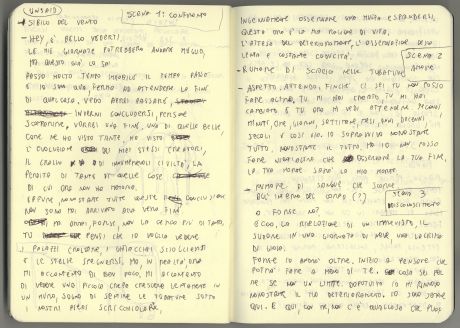 (UNSAID)
SCENA 1: CONFRONTO
→ SIBILO DEL VENTO
- HEY, È BELLO VEDERTI.
LE MIE GIORNATE POTREBBERO ANDARE MEGLIO,
MA QUESTO GIÀ LO SAI
POSSO MOLTO TEMPO IMMOBILE IL TEMPO PASSA
E IO SONO QUI FERMO AD ATTENDERE LA FINE
DI QUALCOSA, VEDO ANNI PASSARE,
INVERNI CONCLUDERSI, PERSONE
SCOMPARIRE, VORREI UNA FINE, UNA DI QUELLE BELLE
COME NE HO VISTO TANTE, HO VISTO
L'EVOLUZIONE DEI MIEI STESSI CREATORI,
IL CROLLO DI INNUMEREVOLI CIVILTÀ, LA
PERDITA DI TANTE DI QUELLE COSE
DI CUI ORA NON HO MEMORIA.
EPPURE NONOSTANTE TUTTE QUESTE CONCLUSIONI
NON SONO MAI ARRIVATO ALLA VERA FINE
MI ANNOI, FORSE NON LA CERCO PIÙ DI TANTO,
TU PENSI CHE IO VOGLIA VEDERE
I PALAZZI CROLLARE, I GHIACCIAI SCIOGLIERSI
E LE STELLE SPEGNERSI, MA IN REALTÀ ORA
MI ACCONTENTO DI BEN POCO, MI ACCONTENTO
DI VEDERE UNA PICCOLA CREPA CRESCERE LENTAMENTE IN
UN MURO, SOGNO DI SENTIRE LE TUBATURE SOTTO
I NOSTRI PIEDI SCRICCHIOLARE,
INGENUAMENTE OSSERVARE UNA MUFFA ESPANDERSI,
QUESTA ORA È LA MIA RAGIONE DI VITA,
L'ATTESA DEL DETERIORAMENTO, L'OSSERVAZIONE DELLA
LENTA E COSTANTE
SCENA 2
AMORE
- RUMORE DI SCROSCIO NELLE TUBATURE
- ASPETTO, ATTENDO, FINCHÉ CI SEI TU NON POSSO
FARE ALTRO, TU MI HAI CREATO, TU MI HAI
CAMBIATO E TU ORA MI VEDI ATTENDERE SECONDI
MINUTI, ORE, GIORNI, SETTIMANE, MESI, ANNI, DECENNI
SECOLI E COSÌ VIA. IO SOPRAVVIVO NONOSTANTE
TUTTO, NONOSTANTE IL TUTTO, MA IO NON POSSO
FARE NIENT'ALTRO CHE OSSERVARE LA TUA FINE,
LA TUA MORTE SARÀ LA MIA MORTE
- RUMORE DI SANGUE CHE SCORRE
ALL'INTERNO DEL CORPO (?)
SCENA 3
DISCONOSCIMENTO
O FORSE NO?
ECCO, LA RIFLESSIONE DI UN IMPREVISTO, IL
SUDARE IN UNA GIORNATA DI NEVE UNA LACRIMA
DI GIOIA.
FORSE IO ANDRÒ OLTRE, INIZIO A PENSARE CHE
POTREI FARE A MENO DI TE. COSA SEI PER
ME SE NON UN LIMITE, DOPOTUTTO IO MI ANNOIO
NONOSTANTE IL TUO DETERIORAMENTO, IO SONO ANCORA
QUI. E QUI, CON ME, NON C'È QUALCOSA CHE PUOI